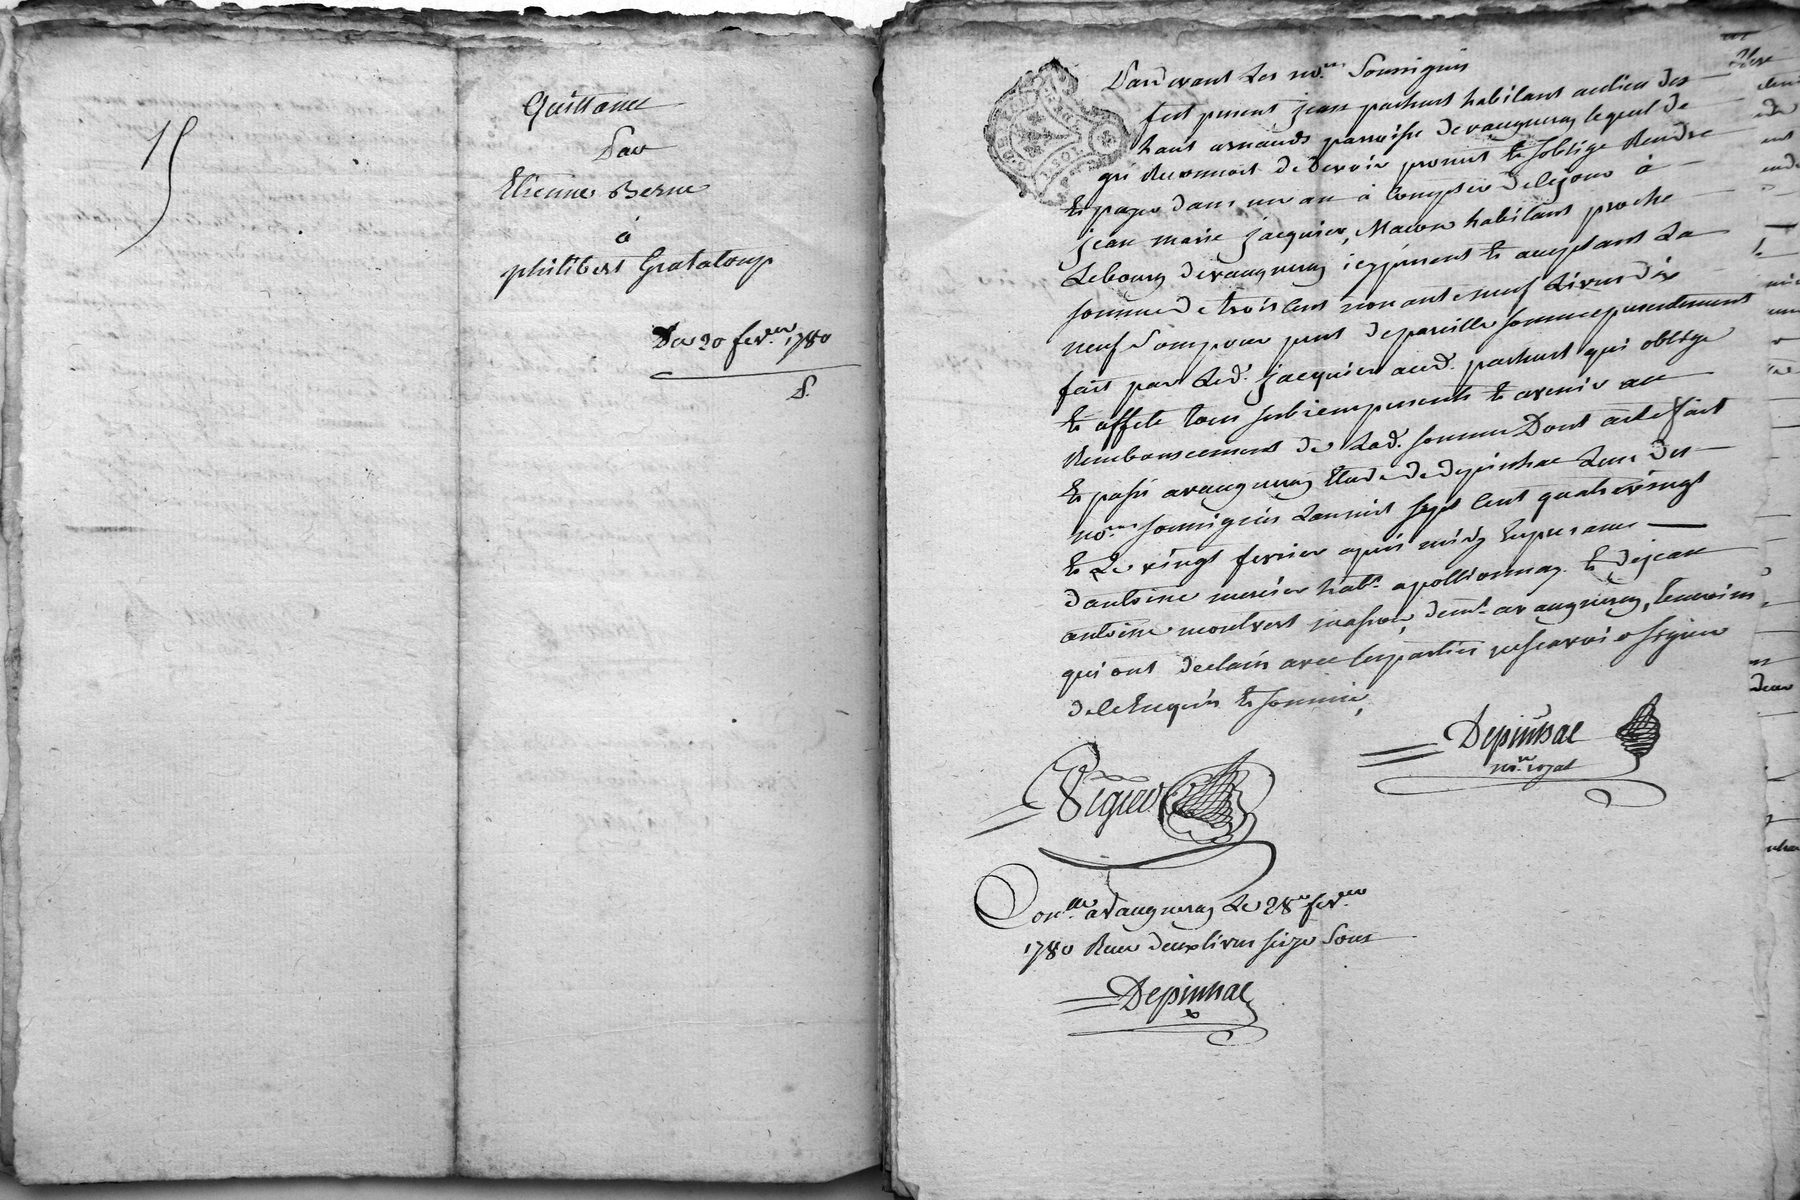 15
Quittance
Par
Etienne Berne
à
philibert Grataloup
Du 20 fev.er 1780
P.
Pardevant Les no.res Soussignés
fut present jean pachust habitant au lieu des
haut arnauds parroisse devaugneray lequel de
gré Reconnoit dedevoir promet et soblige Rendre
et payer dans un an à Compter de cejour à
jean marie jacquier, Macon habitant proche
Lebourg devaugneray icy present et acceptant La
somme de trois cent nonante neuf Livres dix
neuf Sols pour pret depareille somme presentement
fait par Led. jacquier aud. pachust qui oblige
et affecte tous ses biens presents et avenir au
Remboursement de Lad. somme Dont acte fait
et passé avaugneray Etude de depinhac Lun des
no.res soussignés Lan mil sept Cent quatrevingt
et Le vingt fevrier après midy En presence
dantoine mercier hab.t apollionnay et dejean
antoine montvert masson, dem.t avaugneray, temoins
qui ont declaré avec les parties ne scavoir signer
de ce Enquis et sommé,
Depinhac
no.re royal
Viguer
Con.llé avaugneray Le 28e fev.er
1780 Recu deux livres seize Sous
Depinhac